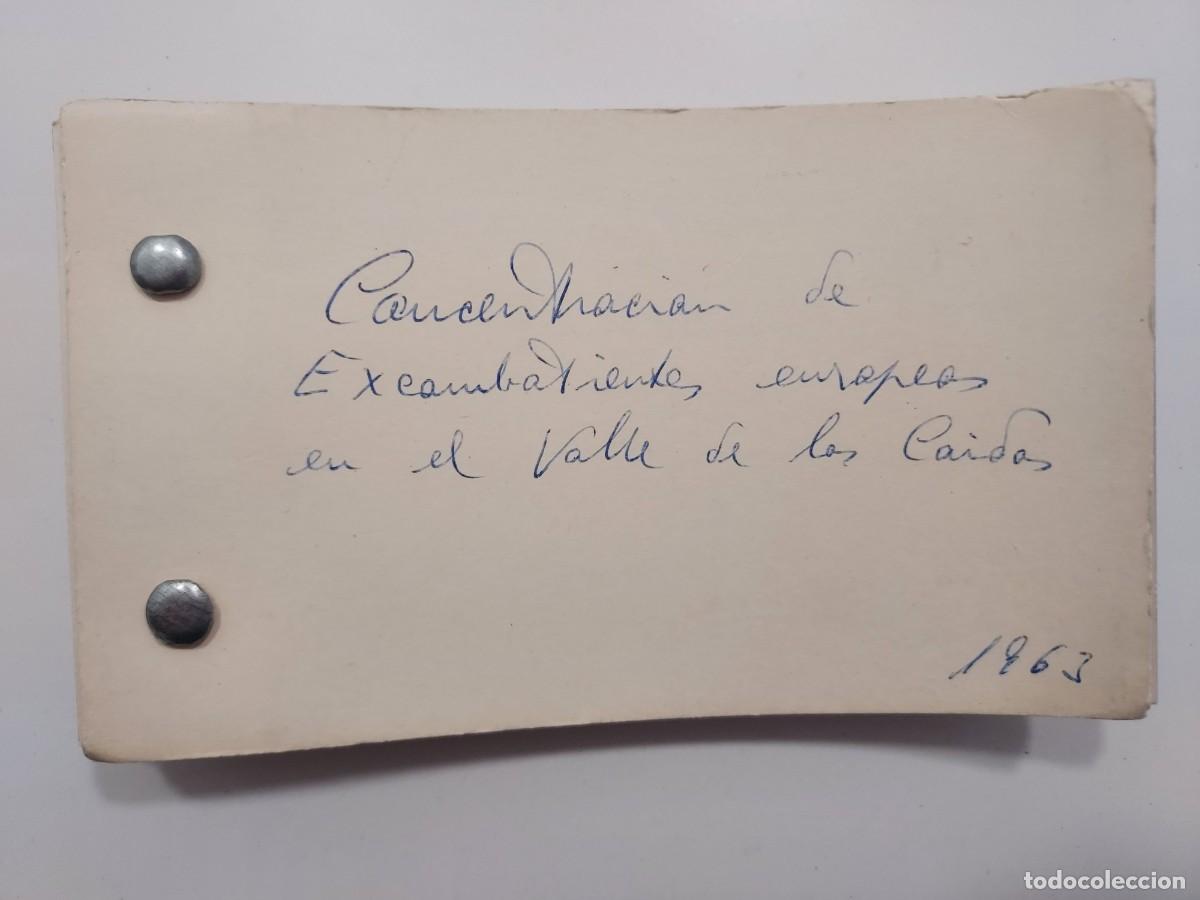 Concentración de
Excombatientes europeos
en el Valle de los Caidos
1963
todocoleccion